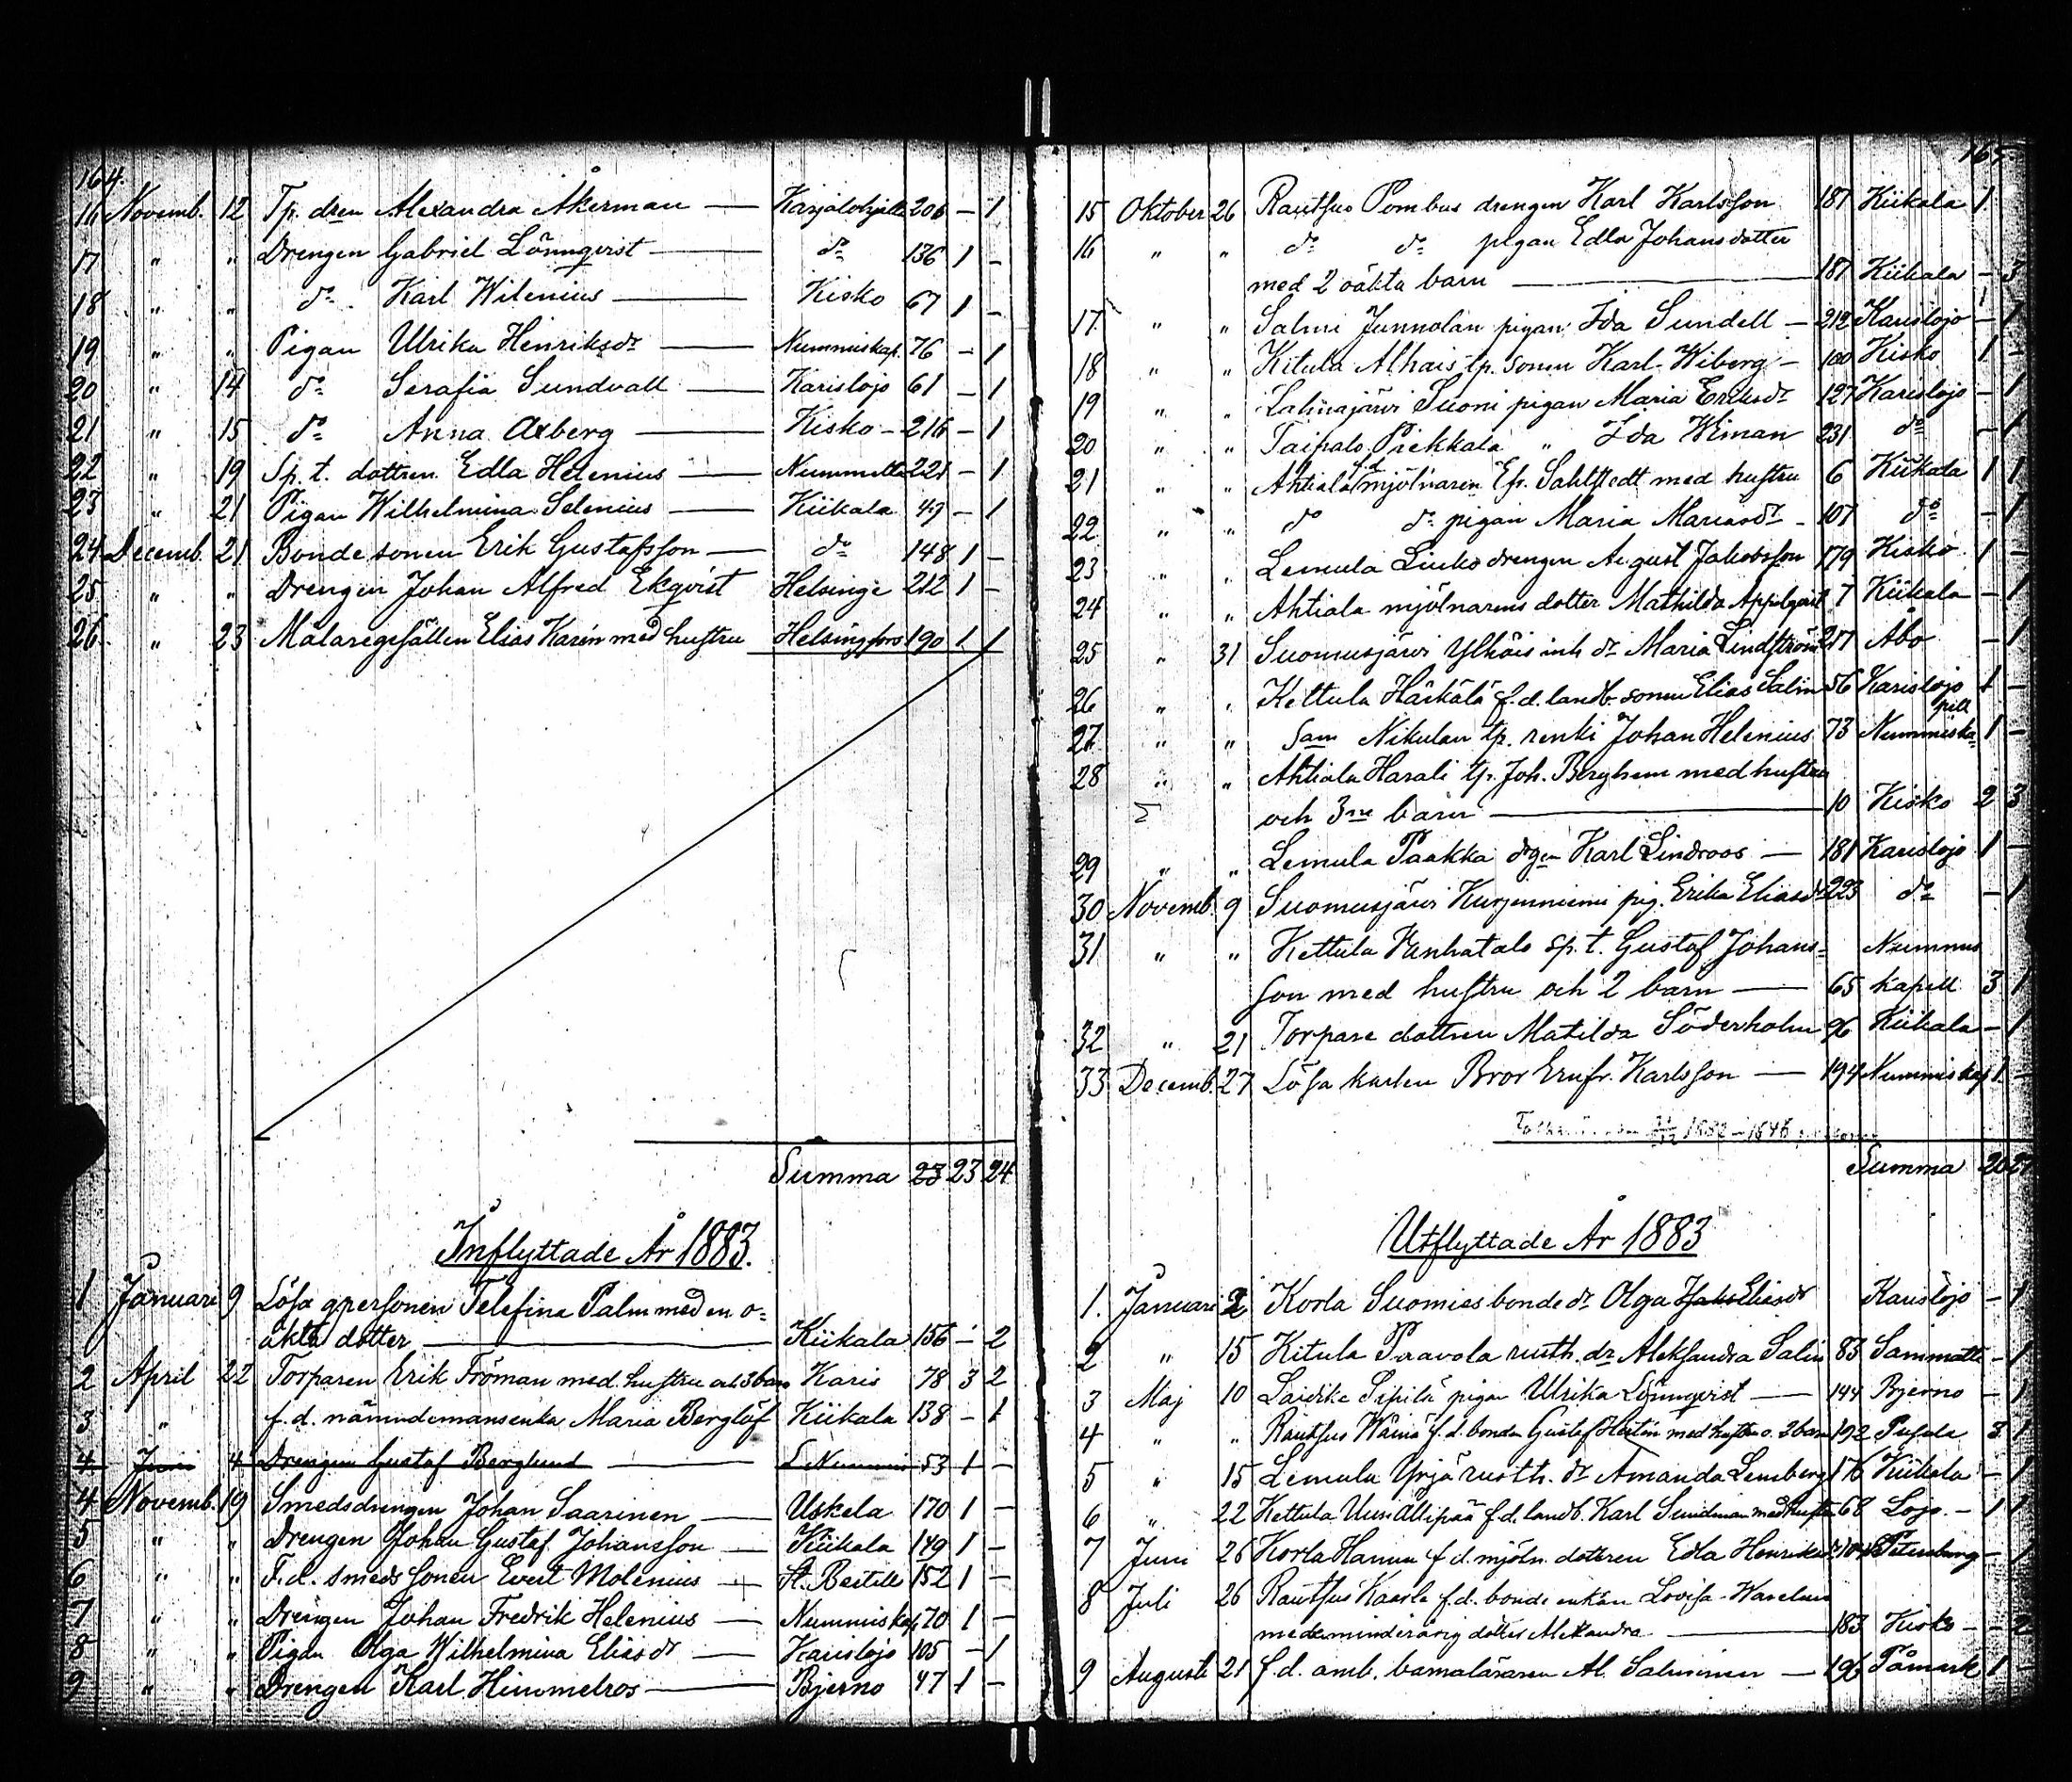 164.
16 Novemb. 12 Tp. dren Alexandra Åkerman — Karjalohja 206 — 1
17 " " Drengen Gabriel Lönnqvist — do 136 1 —
18 " " do Karl Wilenius — Kisko 67 1 —
19 " " Pigan Ulrika Henriksdr — Nummiskap. 76 — 1
20 " 14 do Serafia Sundvall — Karislojo 61 — 1
21 " 15 do Anna Axberg — Kisko — 216 — 1
22 " 19 Sp. t. dottren Edla Helenius — 221 — 1
23 " 21 Pigan Wilhelmina Selenius — Kiikala 49 — 1
24 Decemb. 21 Bondesonen Erik Gustafsson — do 148 1 —
25 " " Drengen Johan Alfred Ekqvist Helsinge 212 1 —
26 " 23 Målaregesällen Elias Karén med hustru Helsingfors 190 1 1
Summa 23 23 24
Inflyttade År 1883.
1 Januari 9 Lösa qpersonen Telefina Palm med en o=
äkta dotter — Kiikala 156 — 2
2 April 22 Torparen Erik Fröman med hustru och 3 barn Karis 78 3 2
3 " f. d. nämndemansenka Maria Berglöf Kiikala 138 — 1
4 Juni 4 Drengen Gustaf Berglund — 53 1 —
4 Novemb. 19 Smedsdrengen Johan Saarinen — Uskela 170 1 —
5 " " Drengen Johan Gustaf Johansson — Kiikala 149 1 —
6 " " F. d. smeds sonen Evert Molenius — St. Bertils 152 1 —
7 " " Drengen Johan Fredrik Helenius — Nummiskap. 70 1 —
8 " " Pigan Olga Wilhelmina Eliasdr — Karislojo 105 — 1
9 " " Drengen Karl Himmelros — Bjerno 47 1 —
165.
15 Oktober 26 Rautsuo Pombus drengen Karl Karlsson 187 Kiikala 1
16 " " do do pigan Edla Johansdotter
med 2 oäkta barn — 187 Kiikala — 3
17 " " Salmi Junnolan pigan Ida Sundell — 212 Karislojo — 1
18 " " Kitula Alhais tp. sonen Karl Wiberg — 100 Kisko 1 —
19 " " Lahnajärvi Suoni pigan Maria Eriksdr 127 Karislojo — 1
20 " " Taipalo Pirkkala " Ida Wiman 231 do — 1
21 " " Ahtiala f.d. mjölnaren Efr. Sahlstedt med hustru 6 Kiikala 1 1
22 " " do do pigan Maria Mariasdr — 107 do — 1
23 " " Lemula Liuko drengen August Jakobsson 179 Kisko 1 —
24 " " Ahtiala mjölnarens dotter Mathilda Appelqvist 7 Kiikala — 1
25 " 31 Suomusjärvi Ylhäis inh. dr Maria Lindström 217 Åbo — 1
26 " " Kettula Härkälä f. d. landb. sonen Elias Salin 56 Karislojo 1 —
27 " " Sam Nikulan tp. renki Johan Helenius 73 Nummiska=pell 1 —
28 " " Ahtiala Harali tp. Joh. Berghem med hustru
och 3ne barn — 10 Kisko 2 3
29 " " Lemula Paakka drgen Karl Lindroos — 181 Karislojo 1 —
30 Novemb. 9 Suomusjärvi Kurjenniemi pig. Erika Eliasdr 223 do — 1
31 " " Kettula Vanhatalo sp. t. Gustaf Johans= Nummis
son med hustru och 2 barn — 65 kapell 3 1
32 " 21 Torpare dottren Matilda Söderholm 96 Kiikala — 1
33 Decemb. 27 Lösa karlen Bror Ernfr. Karlsson — 194 Nummiskap. 1 —
Summa 20
Utflyttade År 1883
1. Januari 2 Korla Suomies bonde dr Olga Eliasdr Karislojo — 1
2 " 15 Kitula Paavola rusth. dr Aleksandra Salin 83 Sammatti — 1
3 Maj 10 Laidike Sipilä pigan Ulrika Lönnqvist — 144 Bjerno — 1
4 " " Rautsuo Wäinä f. d. bonden Gustaf med hustru o. 2 barn 192 Pusula 3 1
5 " 15 Lemula Yrjä rusth. dr Amanda Lemberg 176 Kiikala — 1
6 " 22 Kettula Uusi Allipää f. d. landb. Karl Sundman med hustru 68 Lojo — 1 1
7 Juni 26 Korla Hannu f. d. mjöln. dottren Edla Henriksdr 104 Petersburg — 1
8 Juli 26 Rautsuo Kaarla f. d. bonde enkan Lovisa Wanelius
med minderårig dotter Alexandra — 183 Kisko — 2
9 Augusti 21 f. d. amb. barnaläraren Al. Salminen — 196 Påmark 1 —